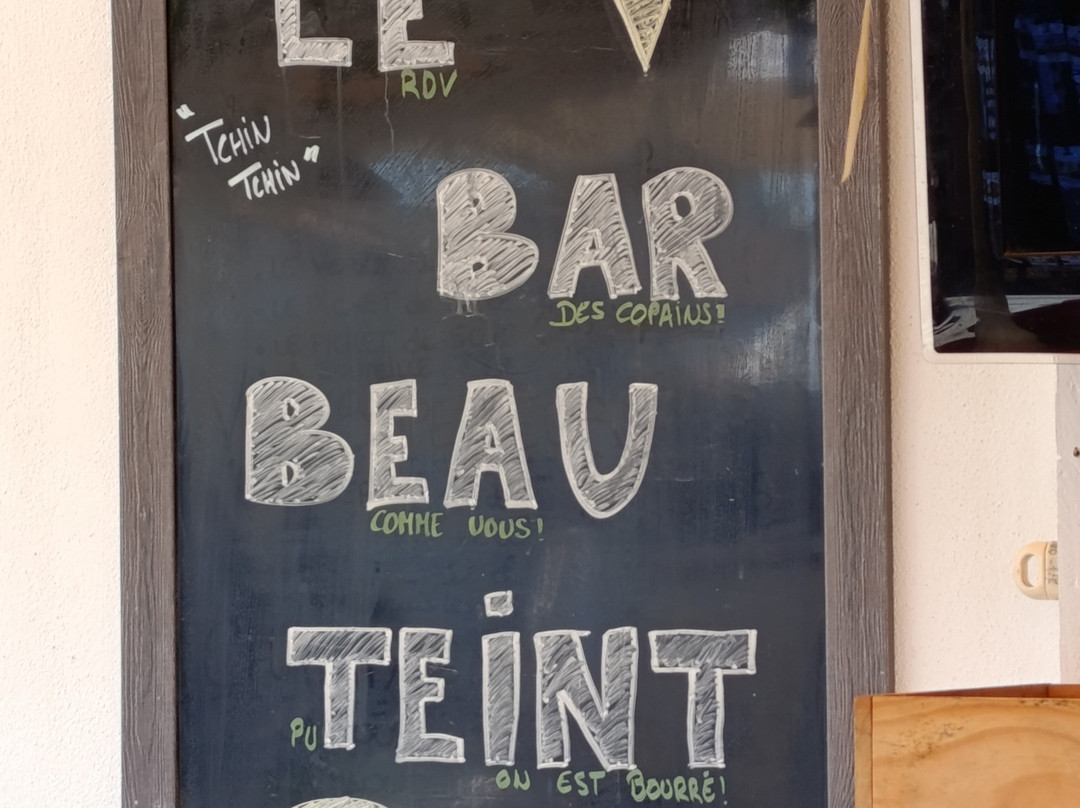 LE
RDV
"TCHIN
TCHIN"
BAR
DES COPAINS!!
BEAU
COMME VOUS!
TEiNT
PU
ON EST BOURRÉ!